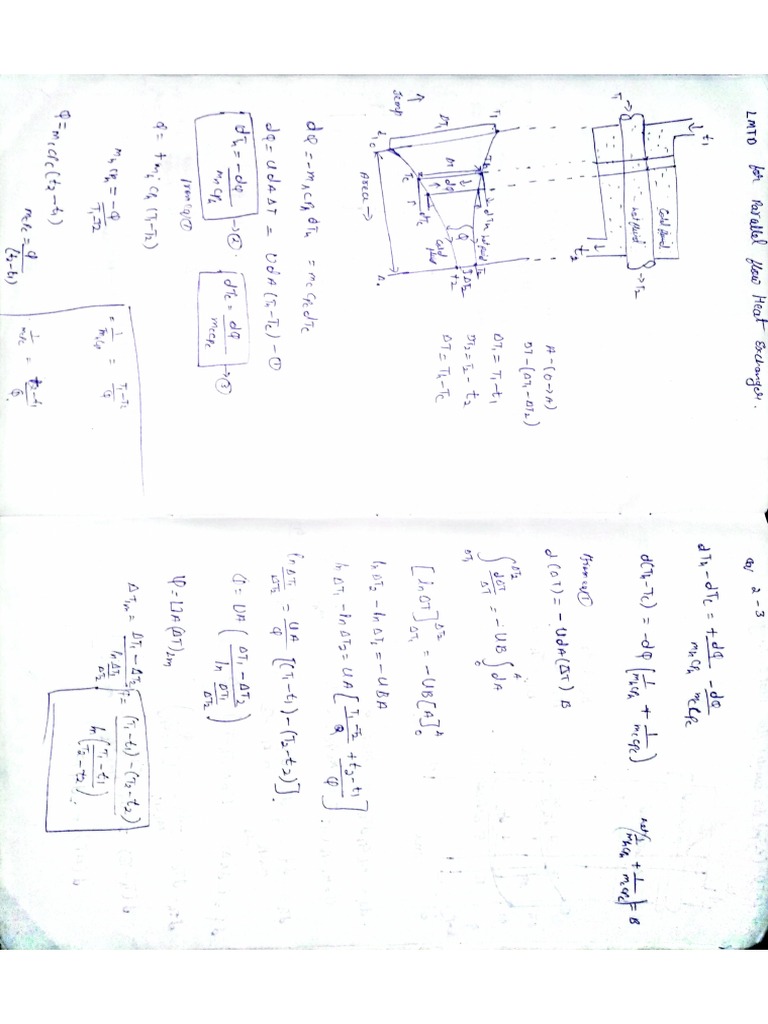 LMTD for Parallel flow Heat Exchanger.
t₁
T₁ → → T₂
Cold fluid
Hot fluid
t₂
↑ Temp
T₁
ΔT₁
t₁
Th
ΔT
dA
Tc
dTh
dTc
Hot fluid
Q
cold fluid
T₂
ΔT₂
t₂
Area →
A - (0→A)
ΔT - (ΔT₁ - ΔT₂)
ΔT₁ = T₁ - t₁
ΔT₂ = T₂ - t₂
ΔT = Th - Tc
dQ = -mh cph dTh = mc cpc dTc
dQ = U dA ΔT = U dA (Th - Tc) - ①
dTh = -dQ/mh cph → ②
dTc = dQ/mc cpc → ③
From eq ①
Q = + mh cph (T₁ - T₂)
mh cph = -Q/T₁-T₂
Q = mc cpc (t₂ - t₁)
mc cpc = Q/(t₂ - t₁)
1/mc cpc = t₂-t₁/Q
2 - 3
dTh - dTc = + dQ/mh cph - dQ/mc cpc
d(Th - Tc) = -dQ [1/mh cph + 1/mc cpc]
(1/mh cph + 1/mc cpc) = B
From eq ①
d(ΔT) = -U dA (ΔT) B
∫ΔT₁^ΔT₂ dΔT/ΔT = -UB ∫₀^A dA
[ln ΔT]ΔT₁^ΔT₂ = -UB[A]₀^A
ln ΔT₂ - ln ΔT₁ = -UBA
ln ΔT₁ - ln ΔT₂ = UA [T₁-T₂/Q + t₂-t₁/Q]
ln ΔT₁/ΔT₂ = UA/Q [(T₁ - t₁) - (T₂ - t₂)]
Q = UA (ΔT₁ - ΔT₂ / ln ΔT₁/ΔT₂)
Q = UA(ΔT)lm
ΔTm = ΔT₁ - ΔT₂ / ln ΔT₁/ΔT₂ = (T₁ - t₁) - (T₂ - t₂) / ln (T₁ - t₁/T₂ - t₂)